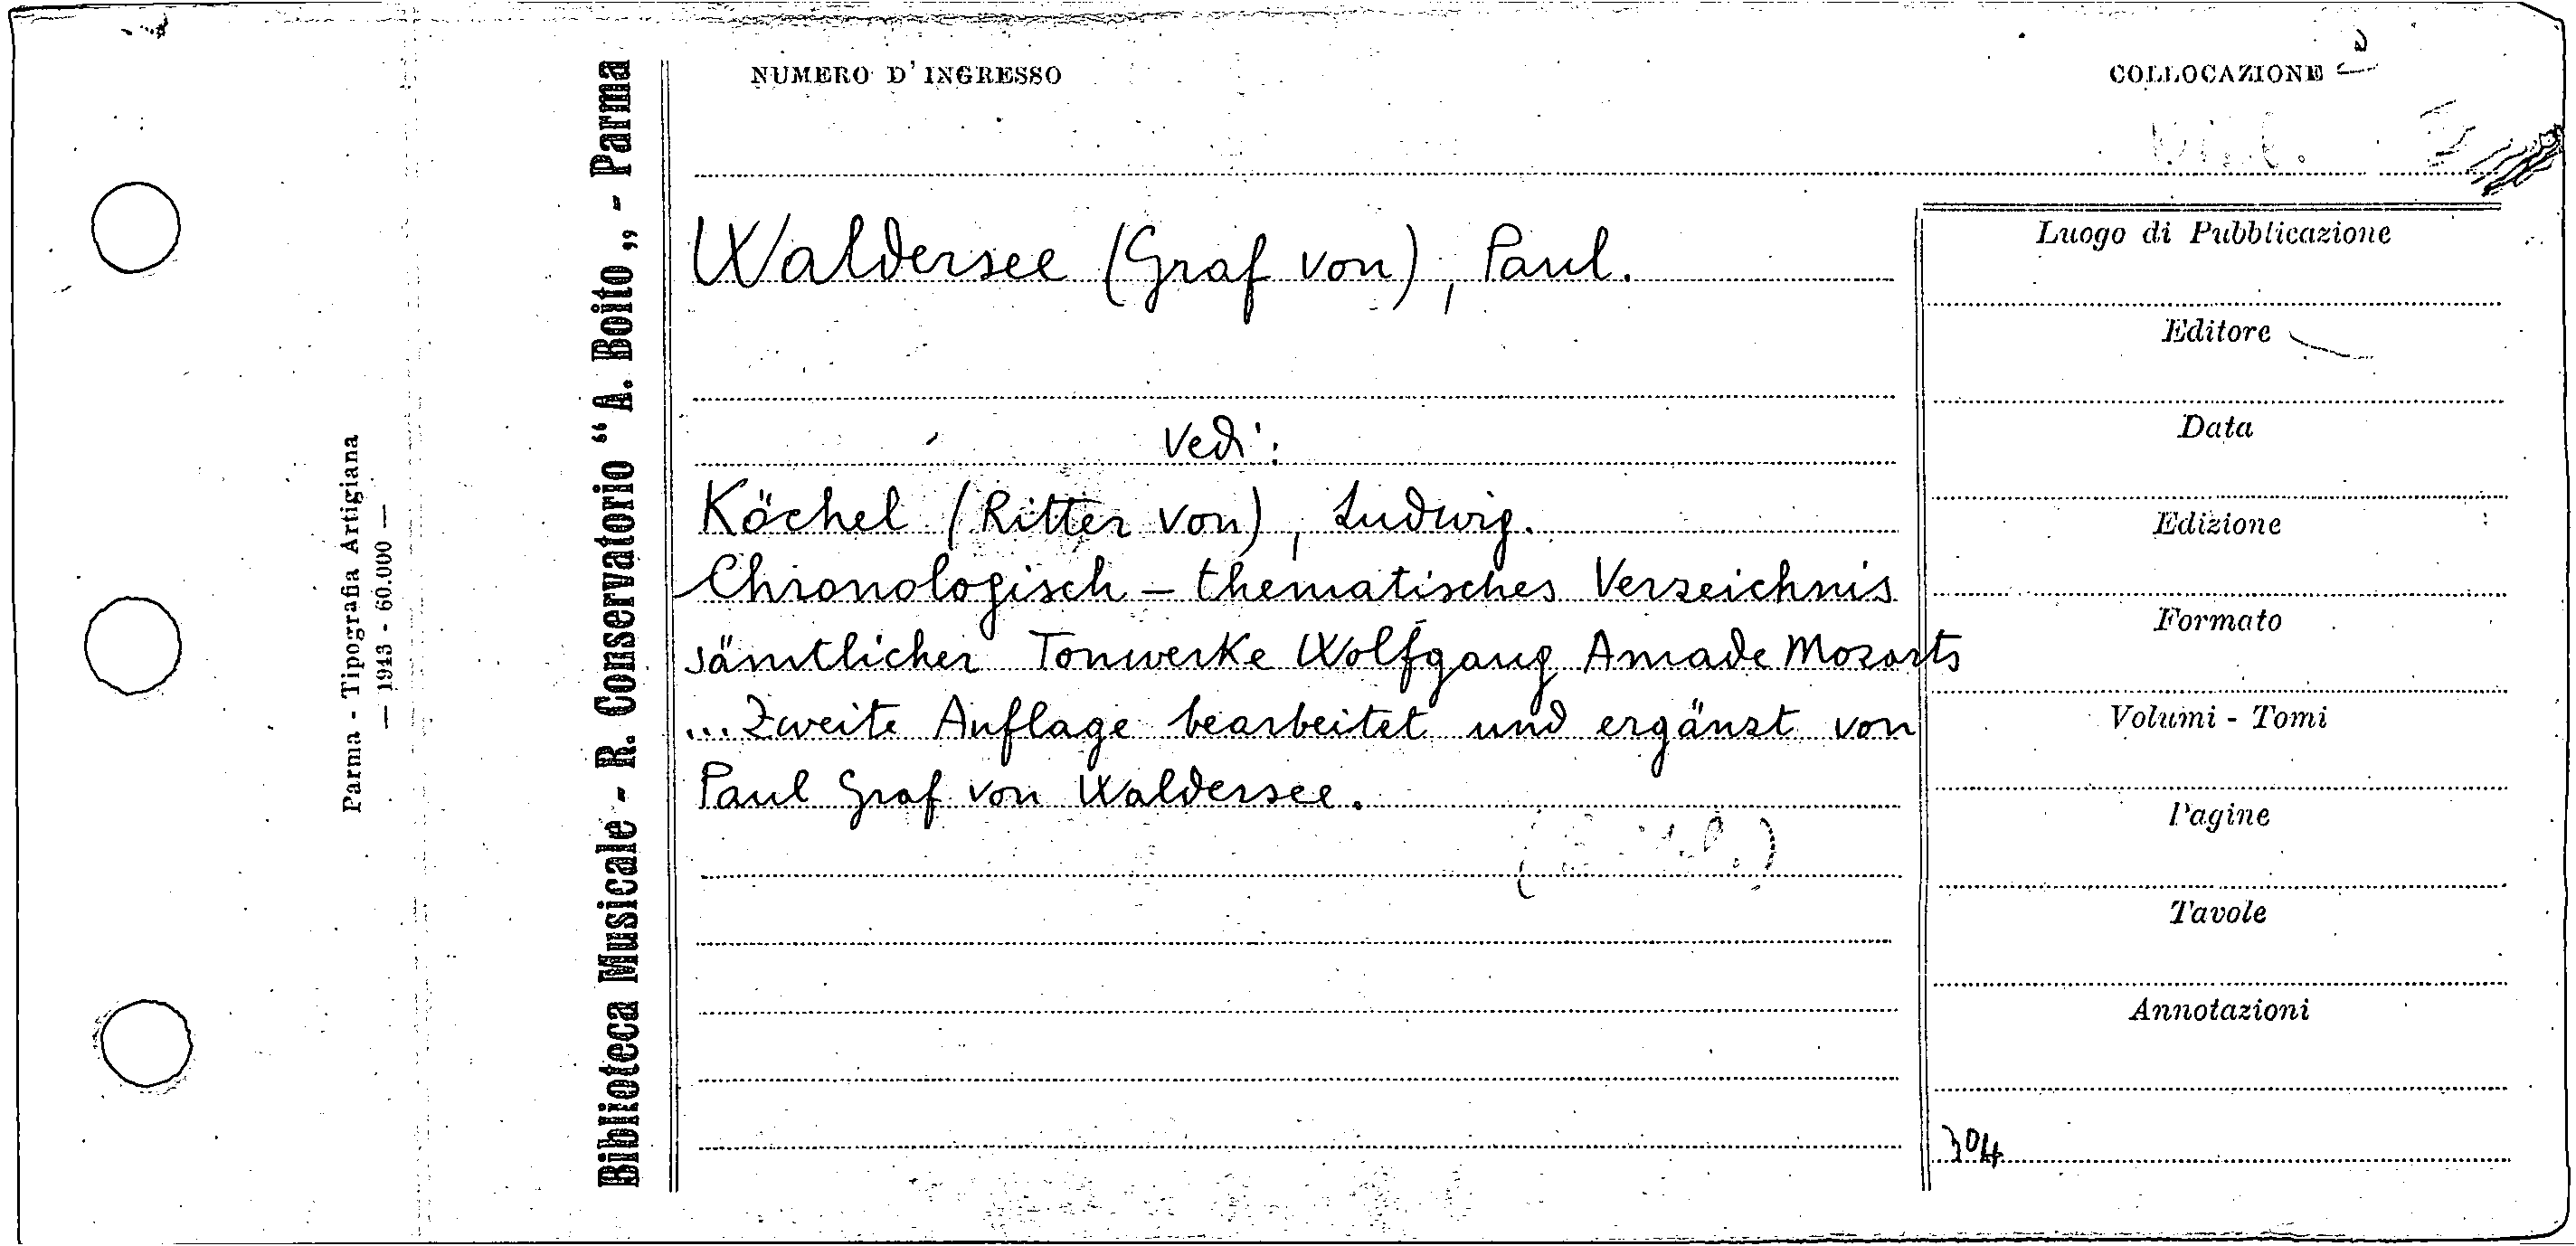 NUMERO D'INGRESSO
COLLOCAZIONE
Parma - Tipografia Artigiana
— 1943 - 60.000 —
Biblioteca Musicale - R. Conservatorio “A. Boito„ - Parma
Waldersee (Graf von), Paul.
Vedi:
Köchel (Ritter von), Ludwig.
Chronologisch - thematisches Verzeichnis
sämtlicher Tonwerke Wolfgang Amade Mozarts
... Zweite Auflage bearbeitet und ergänzt von
Paul Graf von Waldersee.
Luogo di Pubblicazione
Editore
Data
Edizione
Formato
Volumi - Tomi
Pagine
Tavole
Annotazioni
304